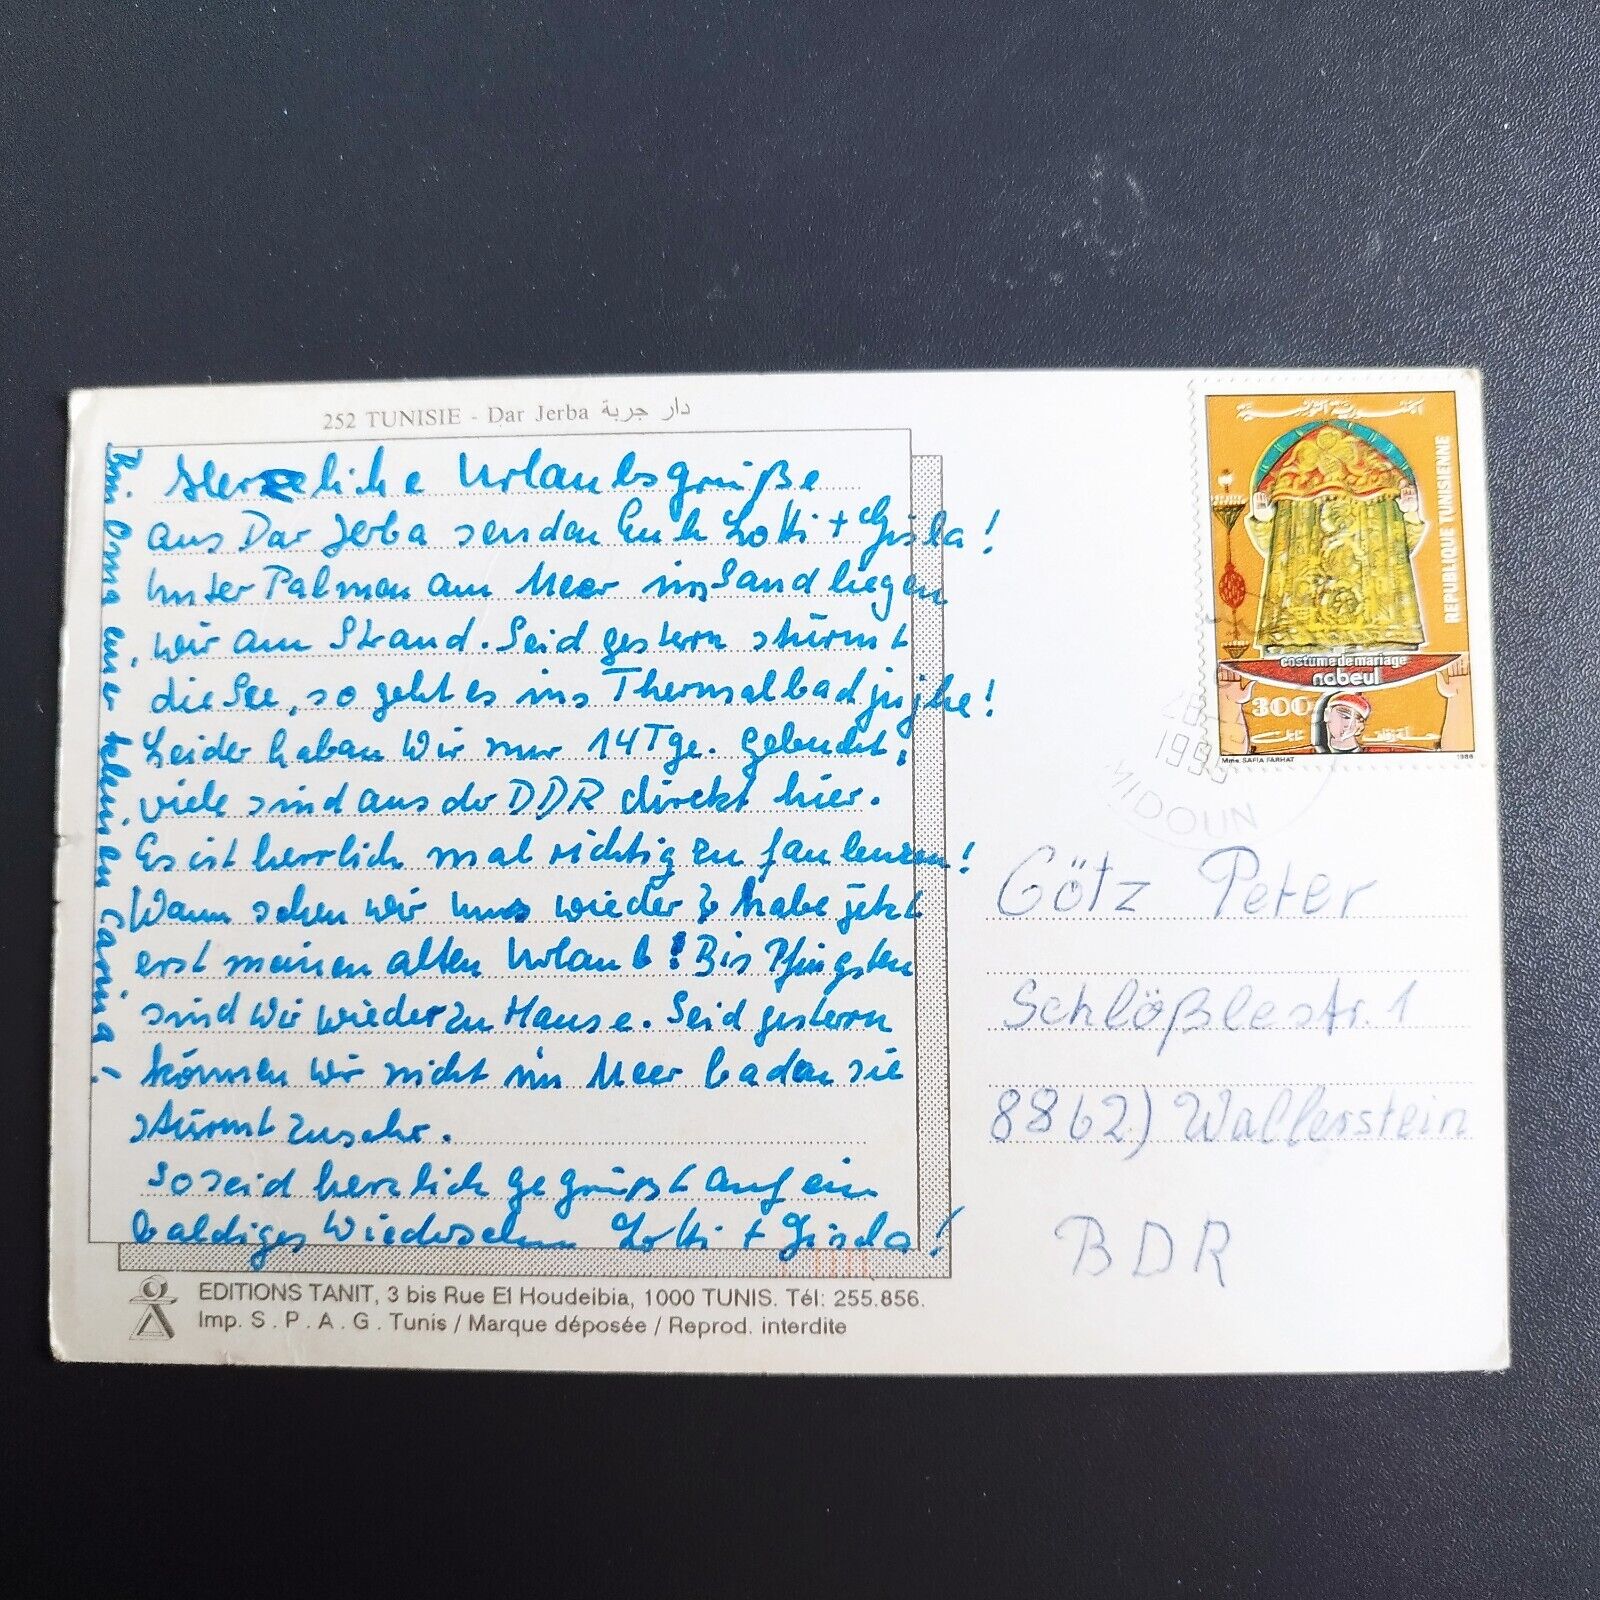 252 TUNISIE - Dar Jerba دار جربة
Herzliche Urlaubsgrüße
aus Dar Jerba senden Euch Lotti + Gisela!
Unter Palmen am Meer im Sand liegen
wir am Strand. Seid gestern stürmt
die See, so geht es ins Thermalbad juhe!
Leider haben Wir nur 14 Tge. gebucht,
viele sind aus der DDR direkt hier.
Es ist herrlich mal richtig zu faulenzen!
Wann sehen wir uns wieder? habe jetzt
erst meinen alten Urlaub! Bis Pfingsten
sind Wir wieder zu Hause. Seid gestern
können wir nicht im Meer baden sie
stürmt zu sehr.
So seid herzlich gegrüßt auf ein
baldiges Wiedersehen Lotti + Gisela!
Oma einer kleinen Carina!
EDITIONS TANIT, 3 bis Rue El Houdeibia, 1000 TUNIS. Tél: 255.856.
Imp. S . P . A . G . Tunis / Marque déposée / Reprod. interdite
الجمهورية التونسية
REPUBLIQUE TUNISIENNE
costume de mariage
nabeul
300
Mme. SAFIA FARHAT 1986
MIDOUN
Götz Peter
Schlößlestr. 1
8862) Wallerstein
BDR